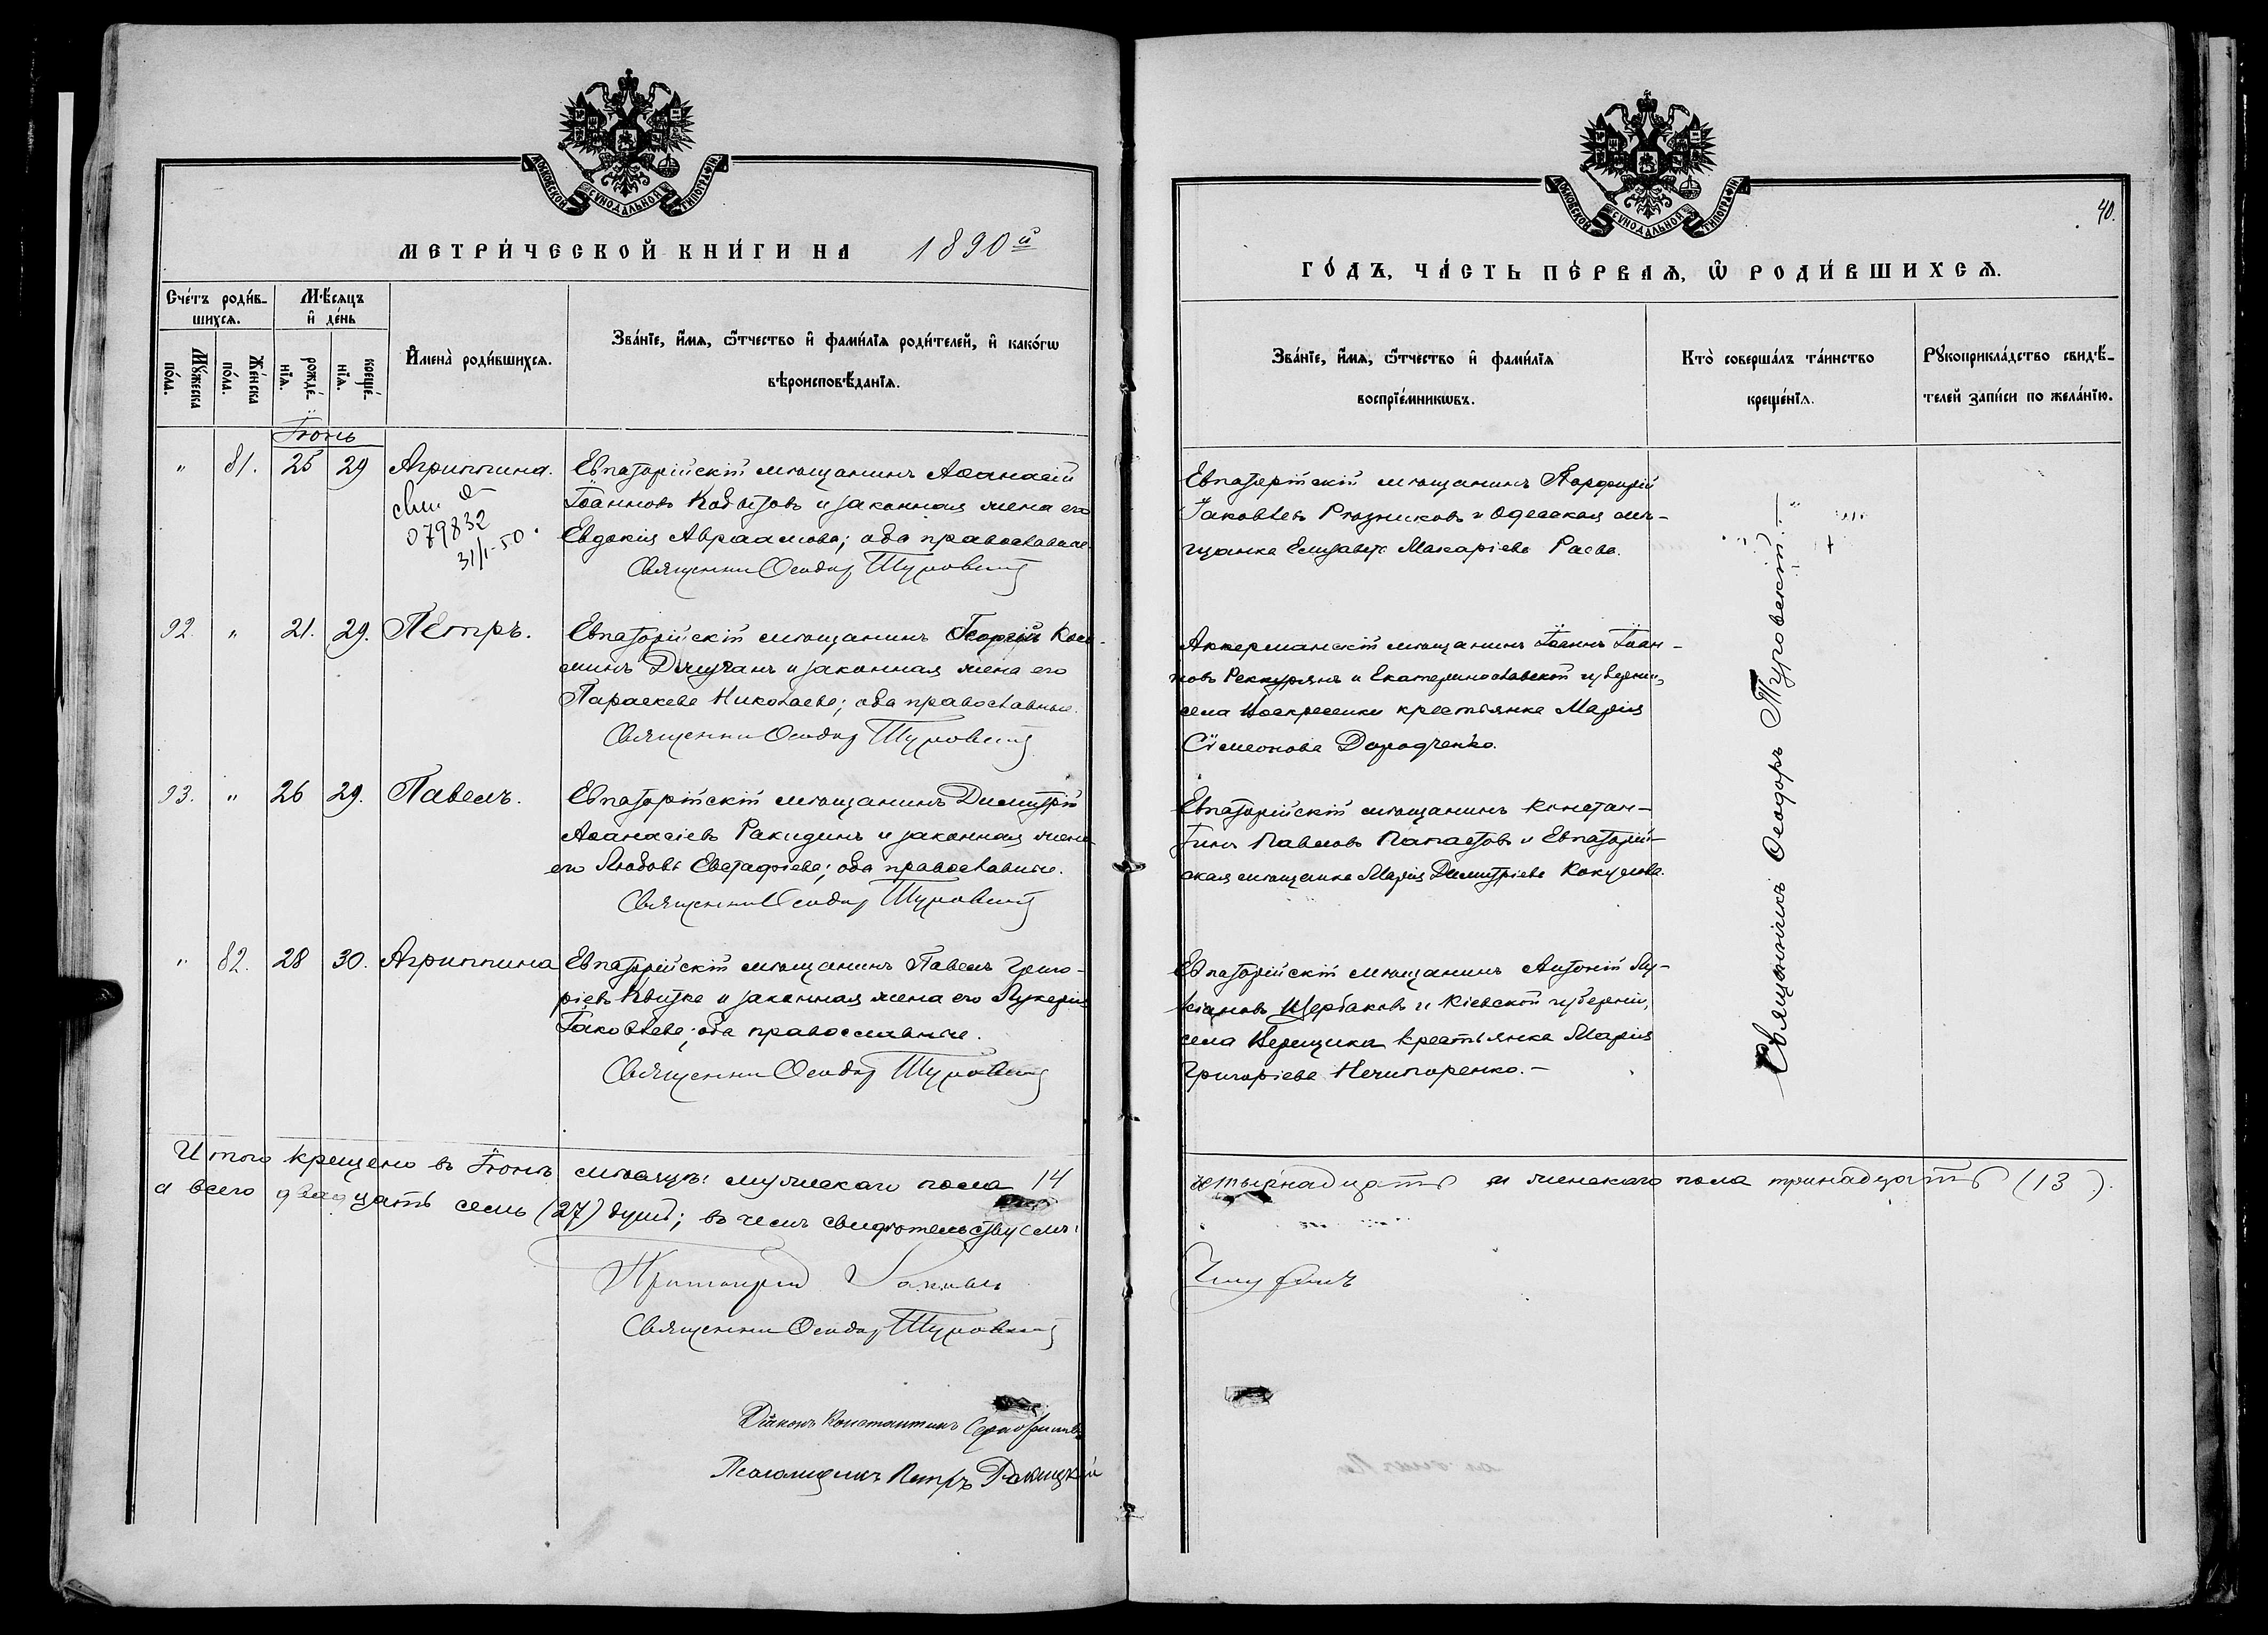 МОСКОВСКОЙ СѴНОДАЛЬНОЙ ТИПОГРАФІИ.
МЕТРИ́ЧЕСКОЙ КНИ́ГИ НА 1890й
Сче́тъ роди́вшихсѧ.
Мѣ́сѧцъ и҆ де́нь
Мꙋ́жеска по́ла.
Же́нска по́ла.
рожде́нїѧ.
креще́нїѧ.
И҆мена̀ роди́вшихсѧ.
Зва́нїе, и҆́мѧ, ѻ҆́тчество и҆ фами́лїѧ роди́телей, и҆ како́гѡ
вѣроисповѣ́данїѧ.
Іюнь
" 81. 25 29 Агриппина.
079832
31/I-50.
Евпаторійскій мѣщанинъ Аѳанасій
Іоанновъ Кобытовъ и законная жена его
Евдокія Авраамова; оба православные.
Священни Ѳеодор Туровскій
92. " 21. 29. Пётръ.
Евпаторійскій мѣщанинъ Георгій Кось-
минъ и законная жена его
Параскева Николаева; оба православные.
Священни Ѳеодор Туровскій
93. " 26 29. Павелъ.
Евпаторійскій мѣщанинъ Димитрій
Аѳанасіевъ Ракидинъ и законная жена
его Любовь Евстафіева; оба православные.
Священни Ѳеодор Туровскій
" 82. 28 30. Агриппина
Евпаторійскій мѣщанинъ Павелъ Григо-
ріевъ Квитка и законная жена его Лукерія
Іаковлева; оба православные.
Священни Ѳеодор Туровскій
Итого крещено въ Іюнѣ мѣсяцѣ: мужескаго пола 14
а всего двадцать семь (27) душъ; въ чемъ свидѣтельствуемъ:
Протоіерей Іаковъ
Священни Ѳеодор Туровскій
Діаконъ Константинъ
Псаломщикъ Петръ
МОСКОВСКОЙ СѴНОДАЛЬНОЙ ТИПОГРАФІИ.
40.
ГО́ДЪ, ЧА́СТЬ ПЕ́РВАѦ, Ѡ҆ РОДИ́ВШИХСѦ.
Зва́нїе, и҆́мѧ, ѻ҆́тчество и҆ фами́лїѧ
воспрїе́мникѡвъ.
Кто̀ соверша́лъ та́инство
креще́нїѧ.
Рꙋкоприкла́дство свидѣ́-
телей за́писи по жела́нїю.
Евпаторійскій мѣщанинъ Порфирій
Іаковлевъ Рѣзниковъ и Одесская мѣ-
щанка Елизавета Макаріева Раева.
Аккерманскій мѣщанинъ Іоаннъ Іоан-
новъ и Екатеринославской губерніи,
села Воскресенки крестьянка Марія
Сѵмеонова Дородченко.
Евпаторійскій мѣщанинъ Констан-
тинъ Павловъ и Евпаторій-
ская мѣщанка Марія Димитріева
Евпаторійскій мѣщанинъ Антоній Лу-
кіановъ Щербаковъ и Кіевской губерніи,
села Верещики крестьянка Марія
Григоріева Нечипоренко.-
Священникъ Ѳеодоръ Туровскій.
четырнадцать и женскаго пола тринадцать (13).